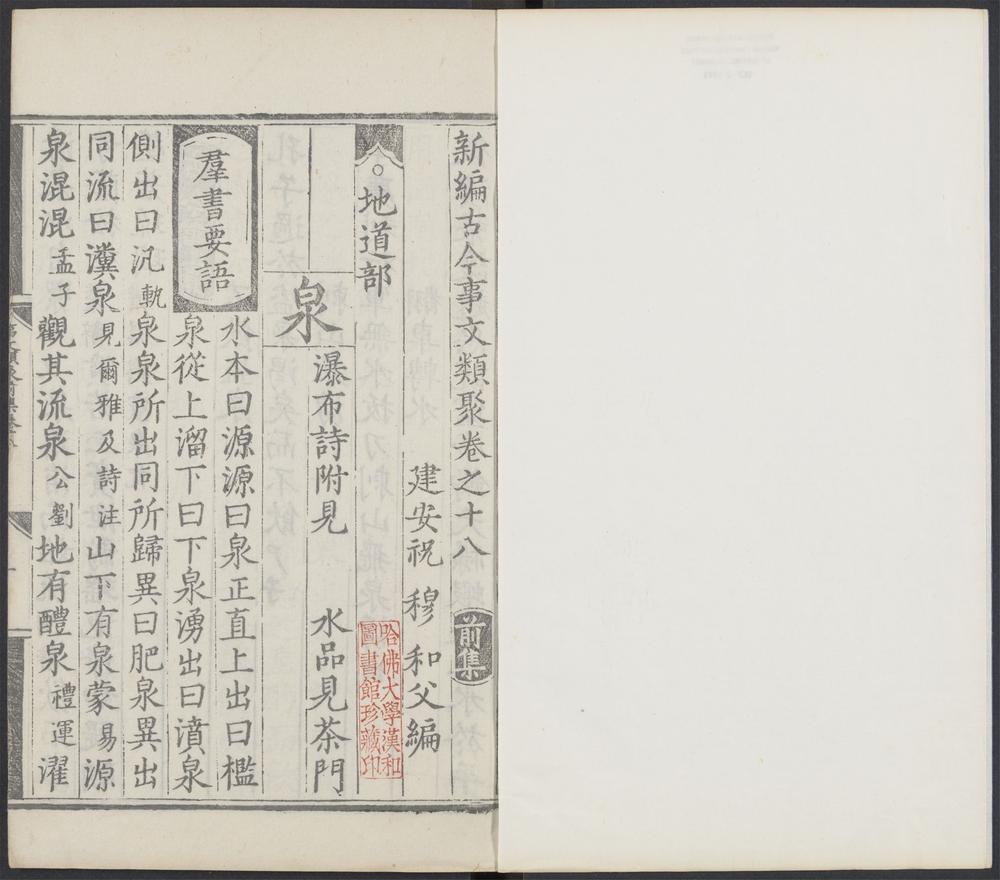 新編古今事文類聚卷之十八 前集
建安祝 穆 和父編
。地道部
哈佛大學漢和
圖書館珍藏印
泉 瀑布詩附見 水品見茶門
羣書要語
水本曰源源曰泉正直上出曰檻
泉從上溜下曰下泉湧出曰濆泉
側出曰氿軌泉泉所出同所歸異曰肥泉異出
同流曰瀵泉見爾雅及詩注山下有泉蒙易源
泉混混孟子觀其流泉公劉地有醴泉禮運濯